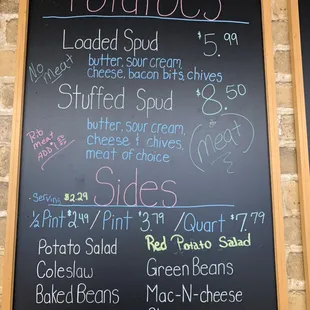 Potatoes
Loaded Spud $5.99
No Meat
butter, sour cream,
cheese, bacon bits, chives
Stuffed Spud $8.50
butter, sour cream,
cheese & chives,
meat of choice
Meat
Rib
meat
ADD
Sides
- Serving $2.29
1/2 Pint $2.49 / Pint $3.79 / Quart $7.79
Potato Salad
Red Potato Salad
Coleslaw
Green Beans
Baked Beans
Mac-N-cheese